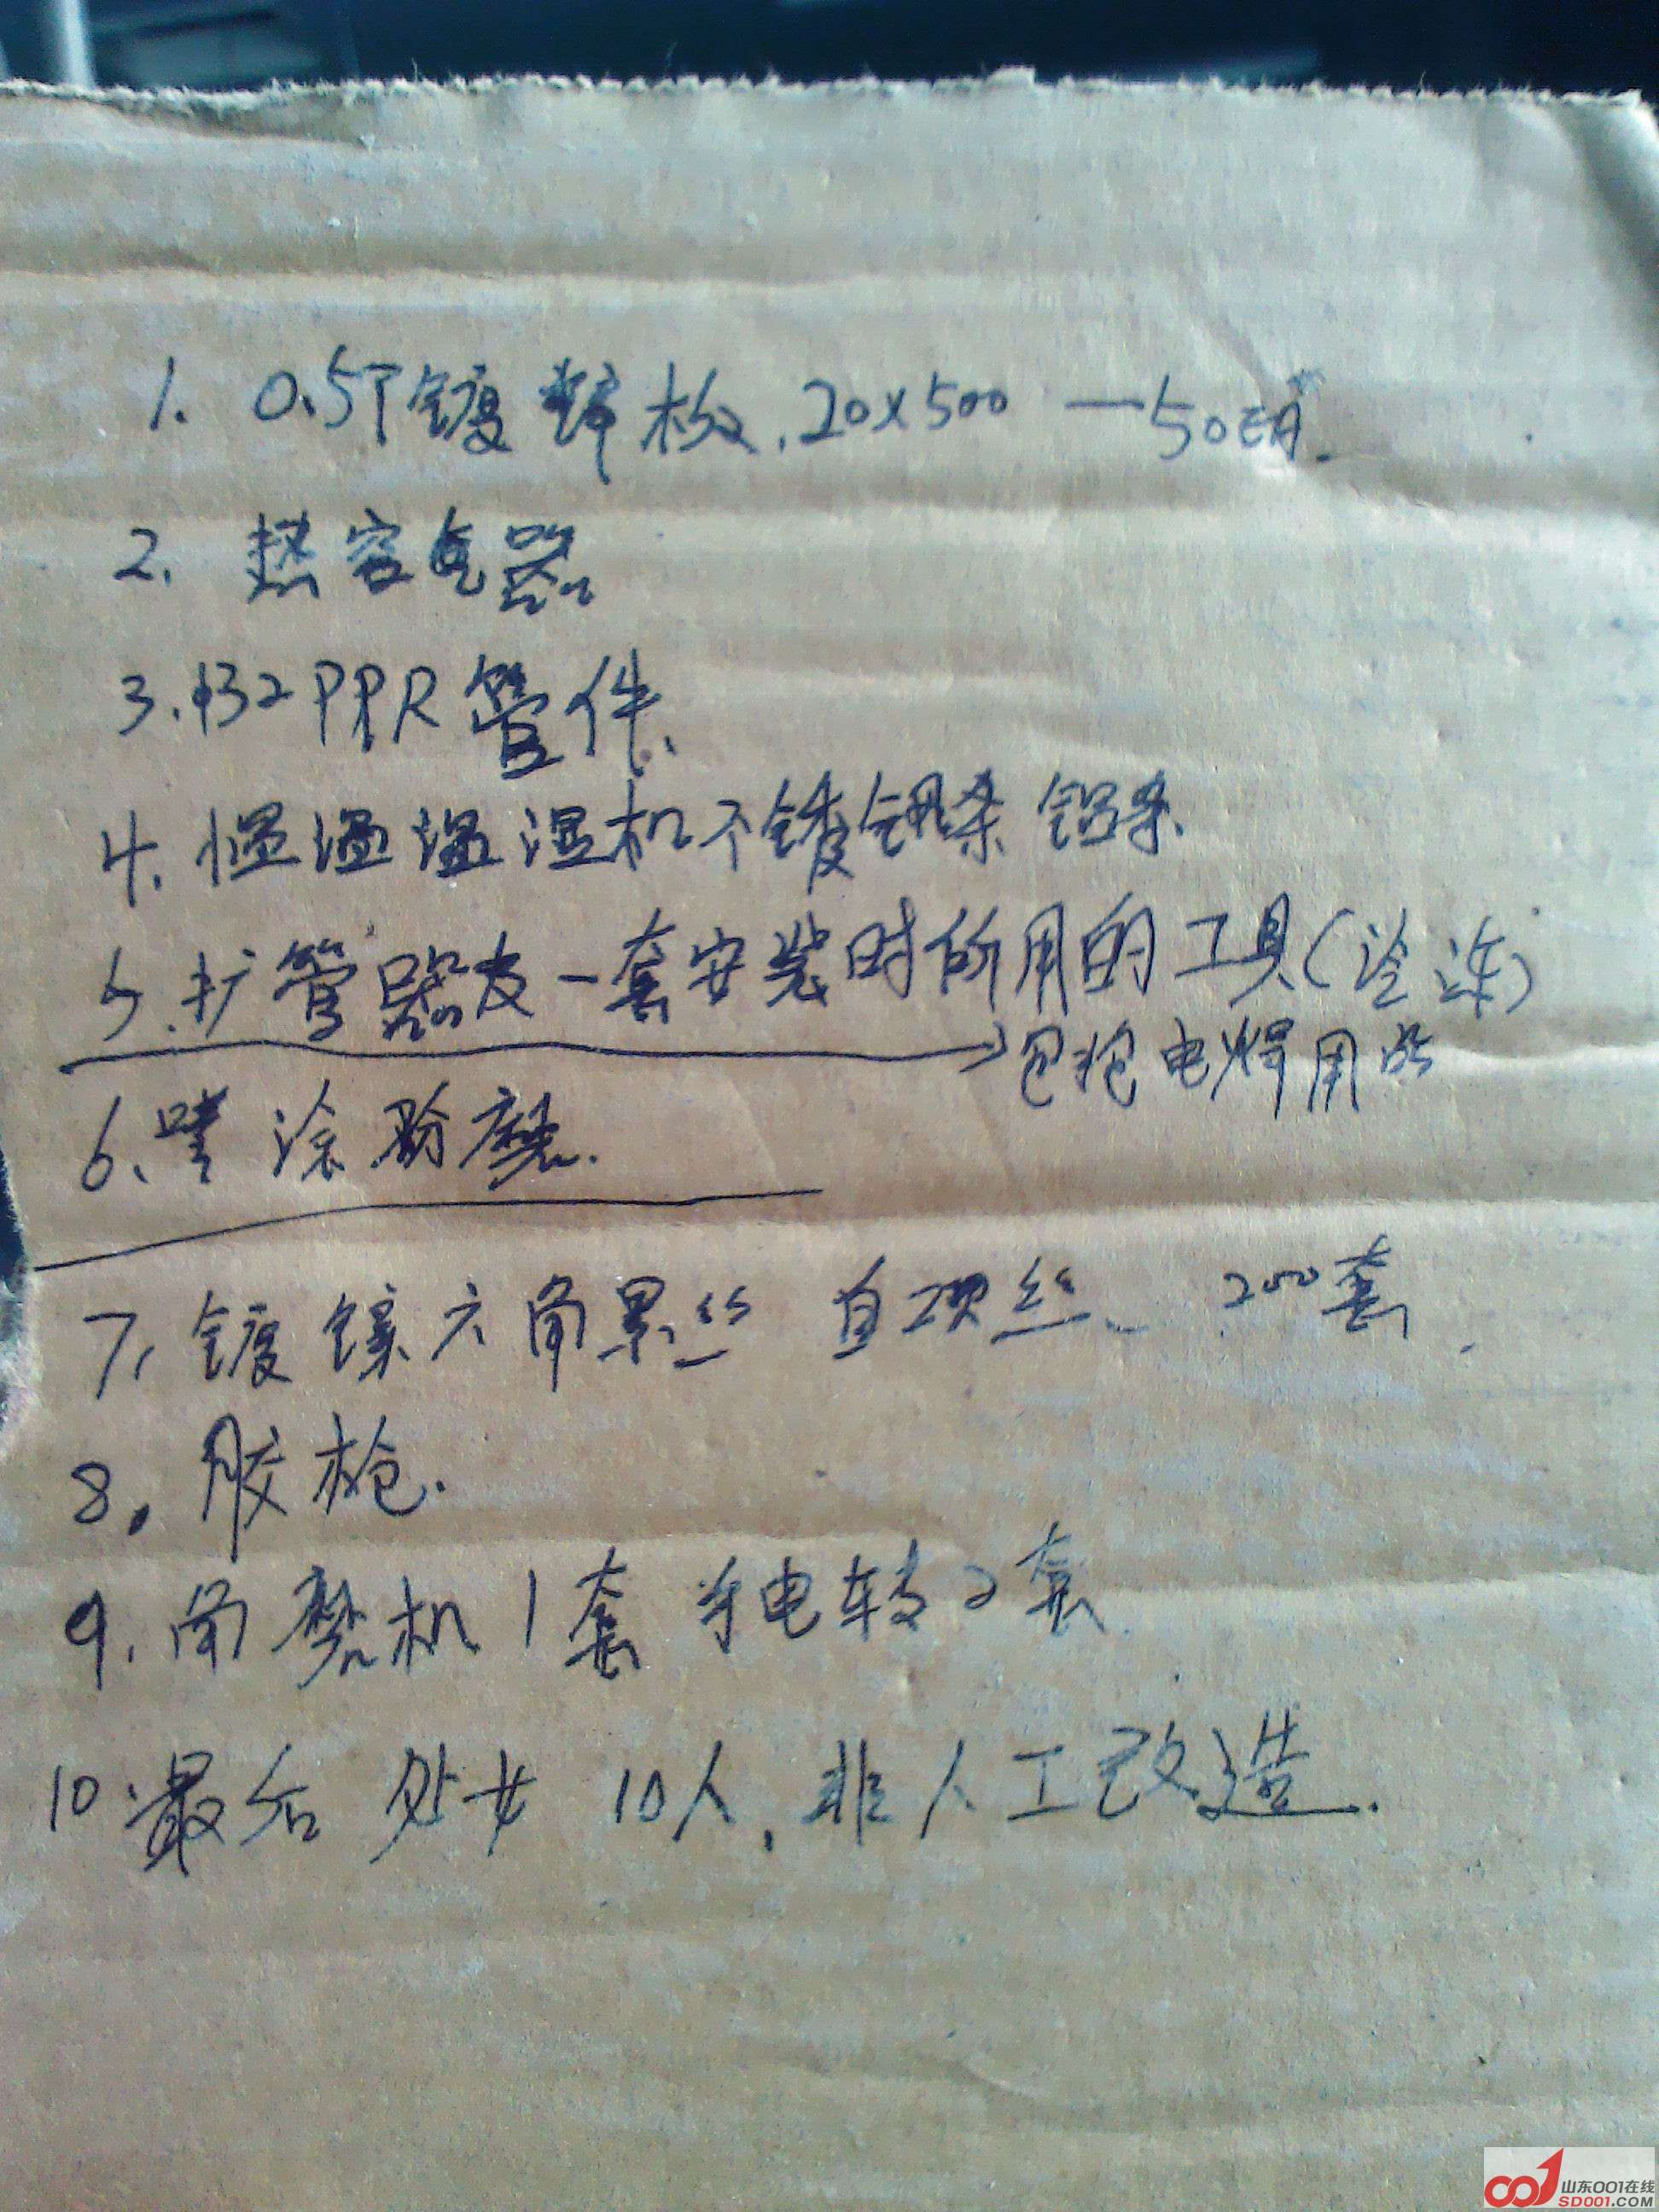 1. 0.5T镀锌板.20×500 —50
2. 热容电器
3. ф32PPR管件.
4. 恒温温湿机不 铝条
5. 扩管器及一套安装时所用的工具(冷冻)
→包抢电焊用品
6. 喷涂
7. 镀镍六角累丝 自攻丝. 200套.
8. 胶枪.
9. 角磨机1套 手电转2套
10.最后 处女 10人.非人工改造.
山东001在线
SD001.COM